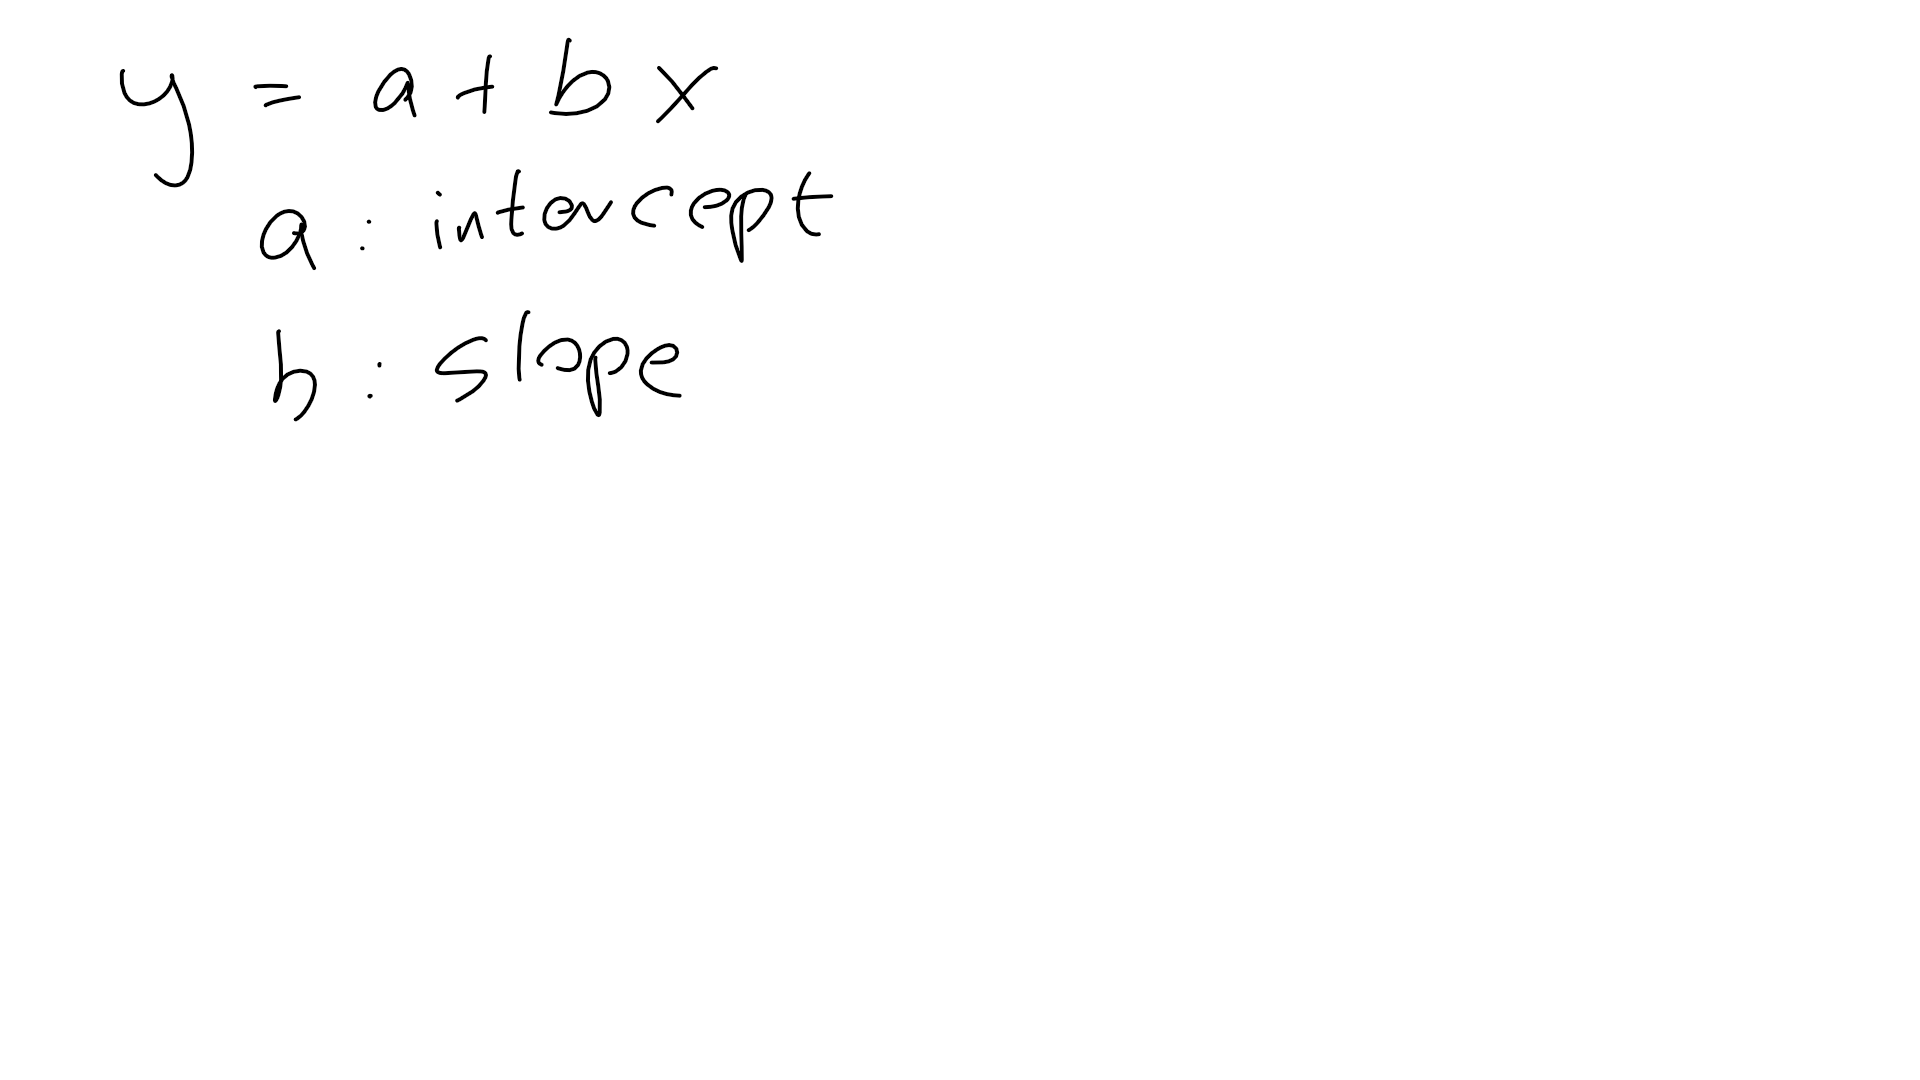 y = a + b x
a : intercept
b : slope